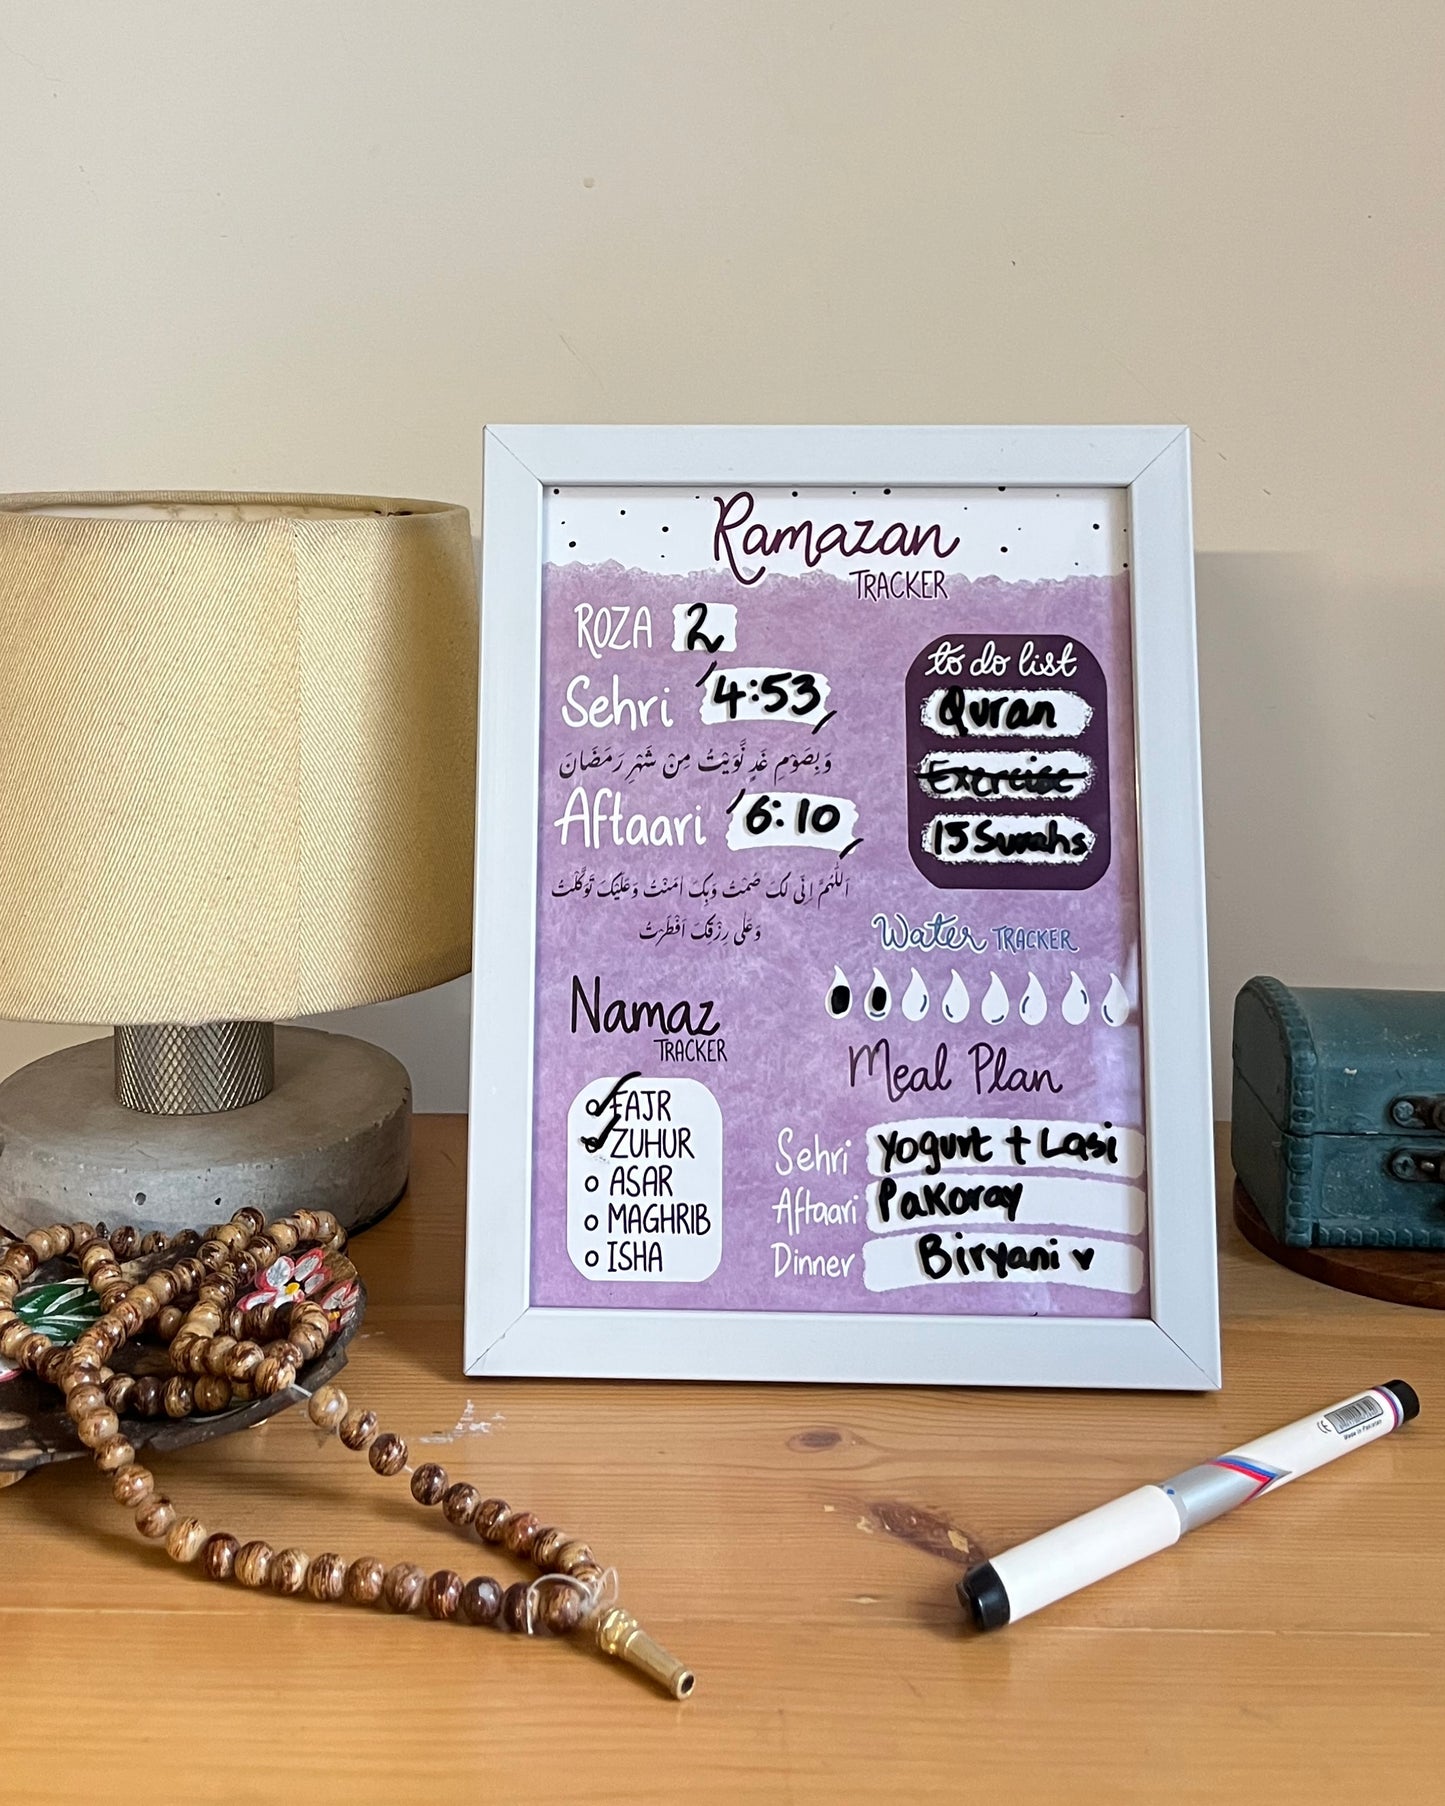 Ramazan
TRACKER
ROZA 2
Sehri 4:53
وَبِصَوْمِ غَدٍ نَّوَيْتُ مِنْ شَهْرِ رَمَضَانَ
Aftaari 6:10
اَللّٰهُمَّ اِنِّی لَکَ صُمْتُ وَبِکَ اٰمَنْتُ وَعَلَيْکَ تَوَکَّلْتُ
وَعَلٰی رِزْقِکَ اَفْطَرْتُ
to do list
Quran
Exercise
15 Surahs
Water TRACKER
Namaz
TRACKER
FAJR
ZUHUR
ASAR
MAGHRIB
ISHA
Meal Plan
Sehri Yogurt + Lasi
Aftaari Pakoray
Dinner Biryani
Made in Pakistan